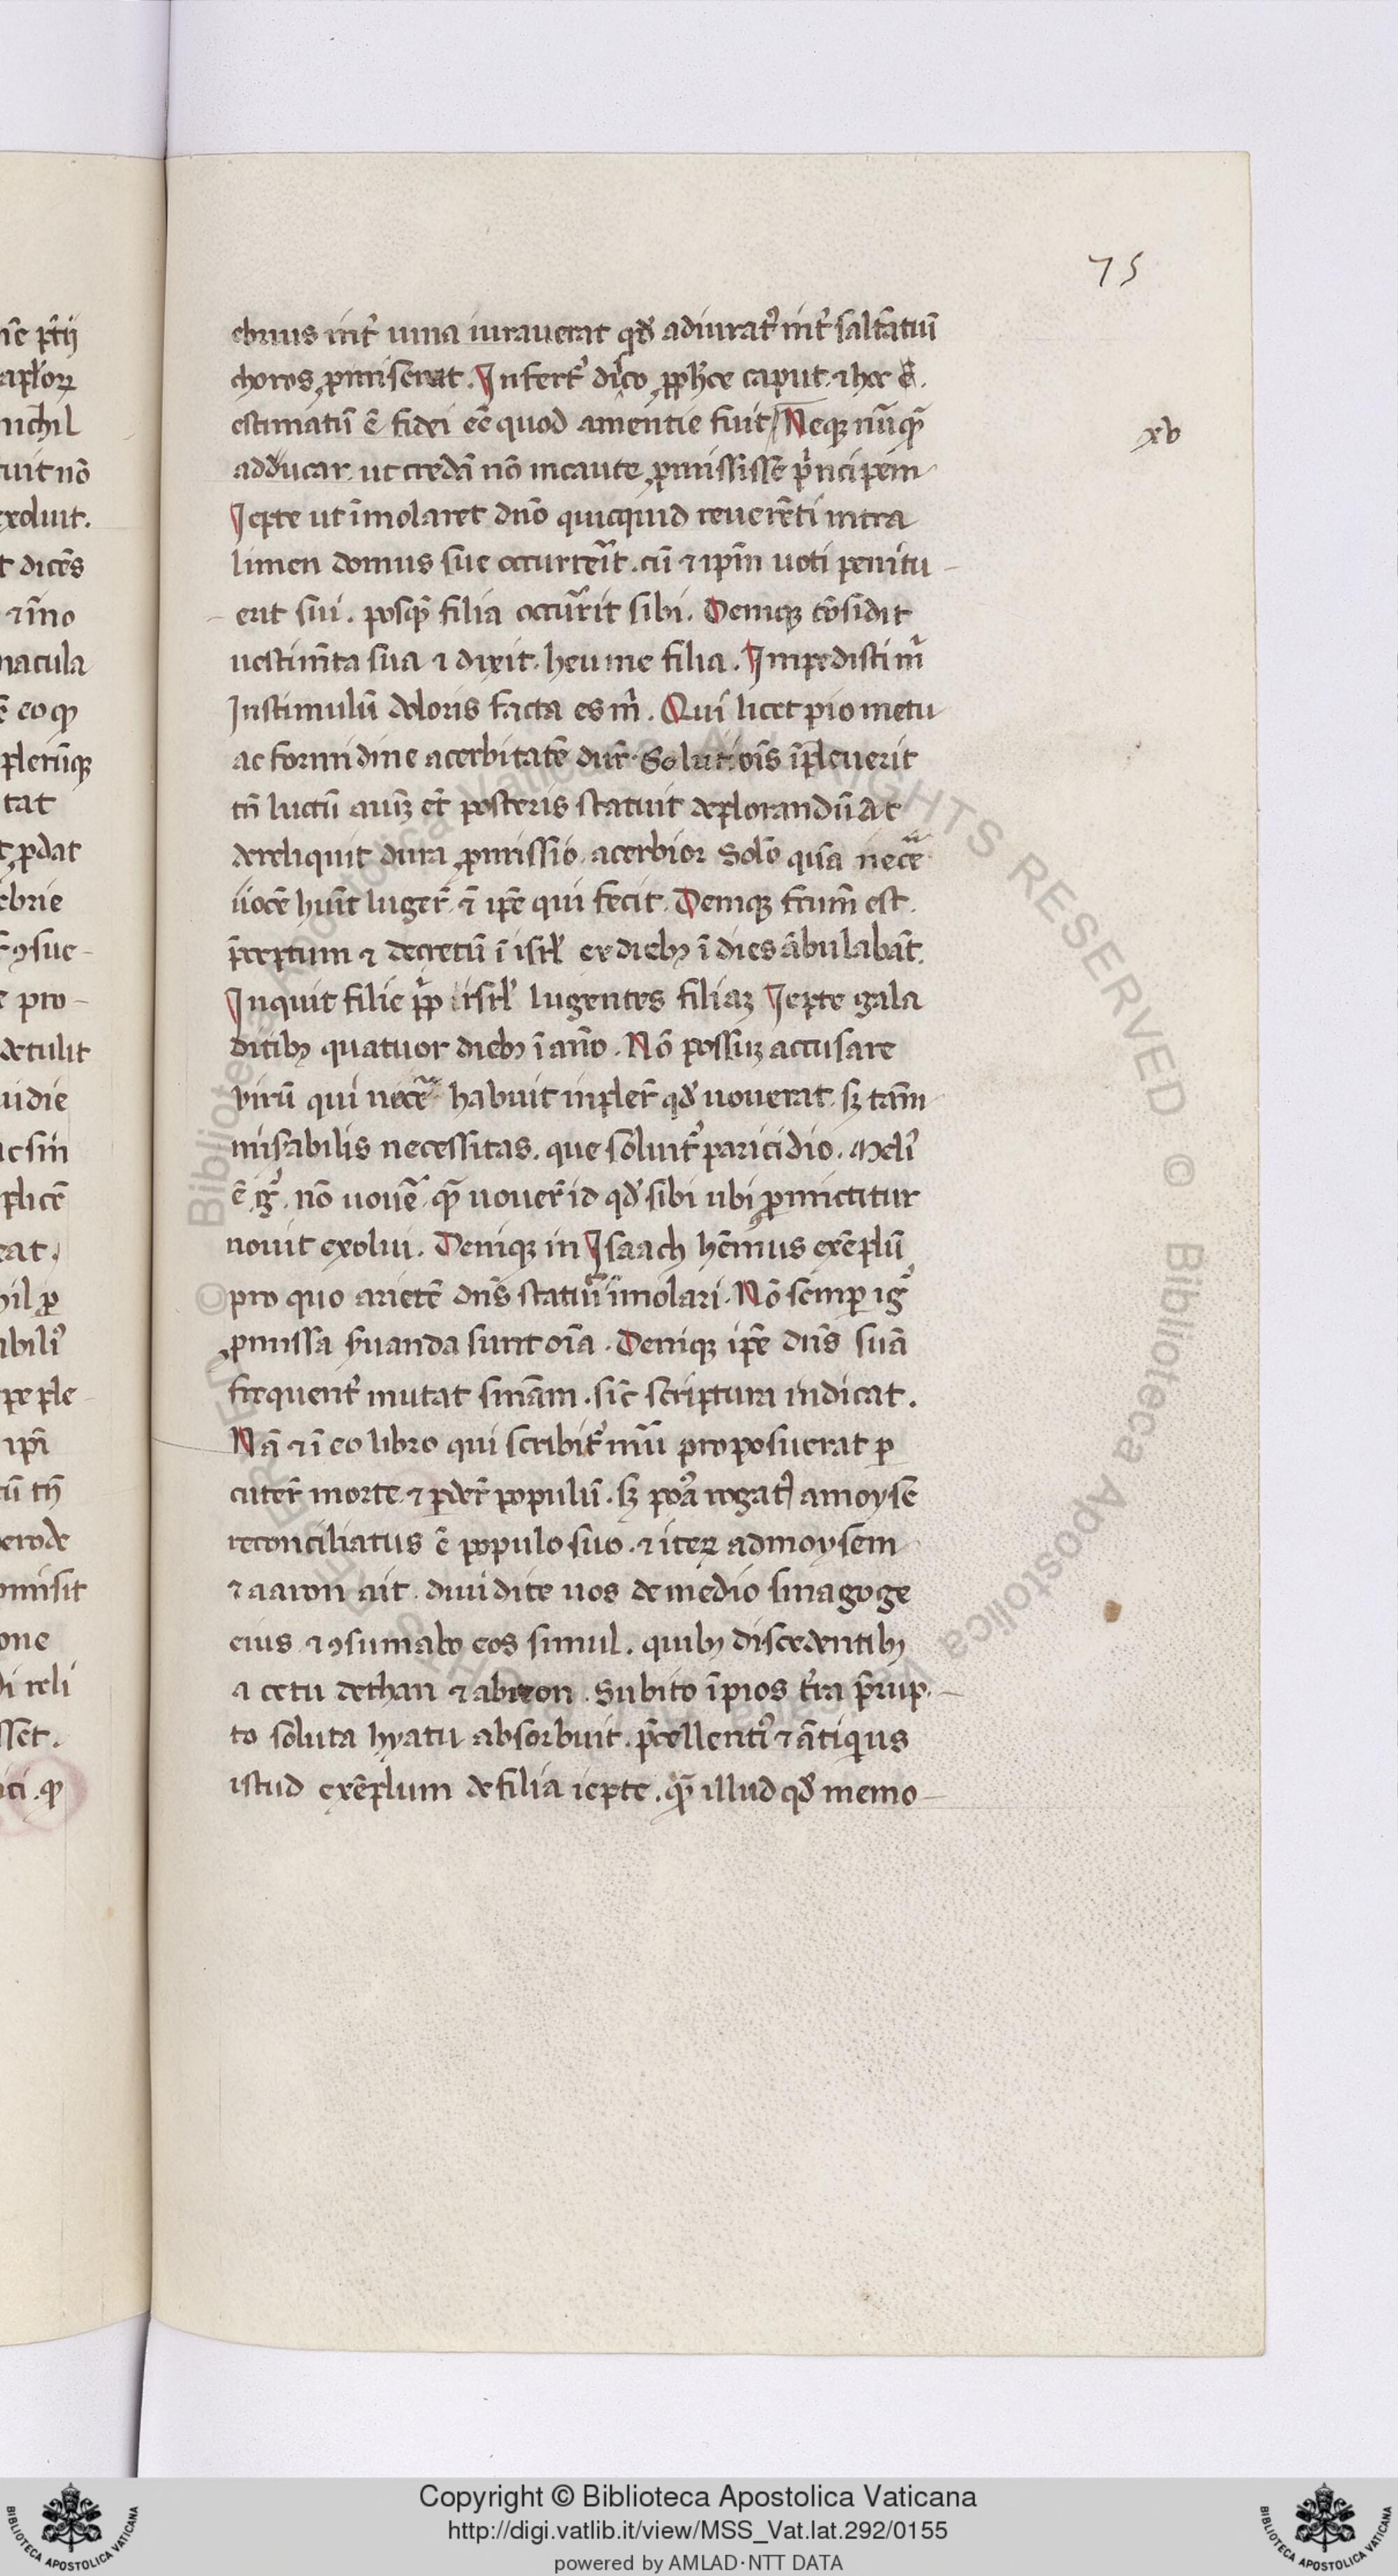 75
ebrius int̉ uina iurauerat qđ adiurat᷒ int̉ saltātiū
choros ꝓmiserat. Infert̉ disco ꝓph̅e caput. ⁊ hoc ē.
estimatū ē fidei eē quod amentie fuit Neqꝫ nūqꝫ̄
xv
adducar. ut credā nō incaute ꝓmississe p̉ncipem
Jepte ut īmolaret dn̄o quicquid reuerēti intra
limen domus sue occurreret. cū ⁊ ip̄m uoti penitu
erit sui. posqꝫ̄ filia occurrit sibi. Deniqꝫ cōsidit
uestim̄ta sua ⁊ dixit. heu me filia. Impedisti m̉
Instimulū doloris facta es m̉. Qui licet pio metu
ac formidine acerbitatē dur̄. Solutiōis īpleuerit
tn̄ luctū annuꝫ et̄ posteris statuit deplorandū At
dereliquit dura ꝓmissio. acerbior Solō
hūit luger̄ ē ip̄e qui fecit. Deniqꝫ fctum̄ est.
p̄ceptum ⁊ decretū ī isrl̄ ex diebꝫ ī dies ābulabāt.
Inquit filie pp̉ isrl̄ lugentes filiaꝫ Jepte gala
ditibꝫ quatuor diebꝫ ī an̄o. Nō possuꝫ accusare
virū qui necē habuit inpler̄ qđ uouerat. sꝫ tam̄
mis̉abilis necessitas. que soluit̉ paricidio. Meli᷒
ē ig̉. nō uouē qꝫ̄ uouer̄ id qđ sibi ubi ꝓmictitur
nouit exolui. Deniqꝫ in Isaach hēmus exēplū
pro quo arietē dn̄s statuit īmolari. Nō semꝑ ig̉
ꝓmissa s̉uanda sunt oīa. Deniqꝫ ip̄e dn̄s suā
frequent̉ mutat sn̄iam. sic̄ scriptura indicat.
Nā ⁊ ī eo libro qui scribit̉ nūi proposuerat ꝑ
cuter̄ morte. ⁊ ꝑder̄ populū. sꝫ poā rogat᷒ amoyse
reconciliatus ē populo suo. ⁊ iteꝝ admoysem
⁊ aaron ait. diuidite uos de medio sinagoge
eius ⁊ ꝯsumabo eos simul. quibꝫ discedentibꝫ
a cetu dethan ⁊ abiron. Subito īpios t̉ra p̄rup
to soluta hyatu absorbuit. p̄cellenti᷒ ⁊ ātiquus
istud exēplum de filia iepte. qꝫ̄ illud qđ memo
Copyright © Biblioteca Apostolica Vaticana
http://digi.vatlib.it/view/MSS_Vat.lat.292/0155
powered by AMLAD·NTT DATA